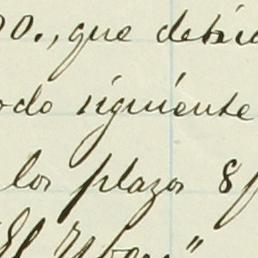 00., que debía
odo siguiente
los plazos 8
"El